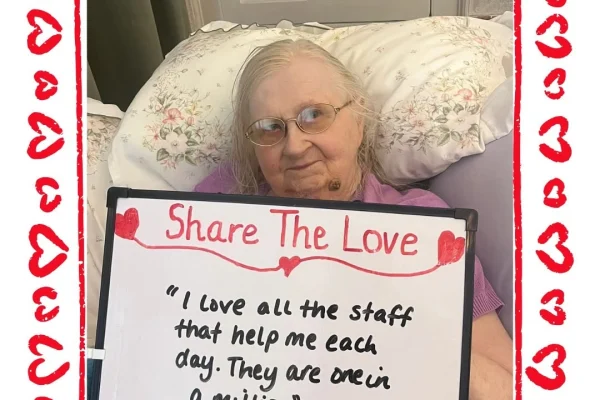 Share The Love
"I love all the staff
that help me each
day. They are one in